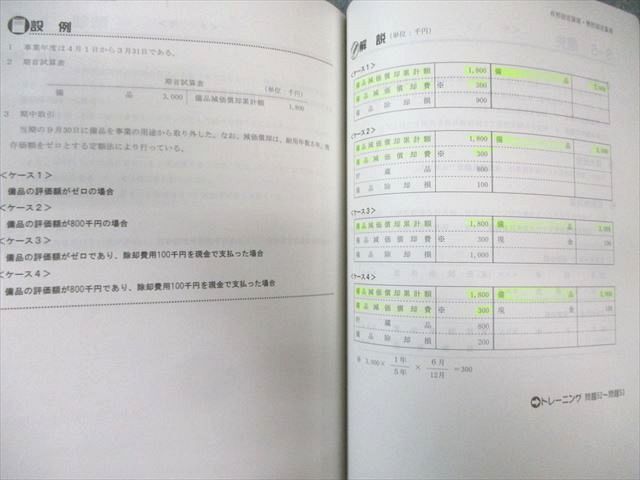 設例
1 事業年度は4月1日から3月31日である。
2 期首試算表
期首試算表 (単位:千円)
備品 3,000 備品減価償却累計額 1,800
3 期中取引
当期の9月30日に備品を事業の用途から取り外した。なお、減価償却は、耐用年数5年、残
存価額をゼロとする定額法により行っている。
<ケース1>
備品の評価額がゼロの場合
<ケース2>
備品の評価額が800千円の場合
<ケース3>
備品の評価額がゼロであり、除却費用100千円を現金で支払った場合
<ケース4>
備品の評価額が800千円であり、除却費用100千円を現金で支払った場合
解説 (単位:千円)
<ケース1>
備品減価償却累計額 1,800 備品 3,000
備品減価償却費 ※ 300
備品除却損 900
<ケース2>
備品減価償却累計額 1,800 備品 3,000
備品減価償却費 ※ 300
貯蔵品 800
備品除却損 100
<ケース3>
備品減価償却累計額 1,800 備品 3,000
備品減価償却費 ※ 300 現金 100
備品除却損 1,000
<ケース4>
備品減価償却累計額 1,800 備品 3,000
備品減価償却費 ※ 300 現金 100
貯蔵品 800
備品除却損 200
※ 3,000× 1年/5年 × 6月/12月 =300
トレーニング 問題52~問題53